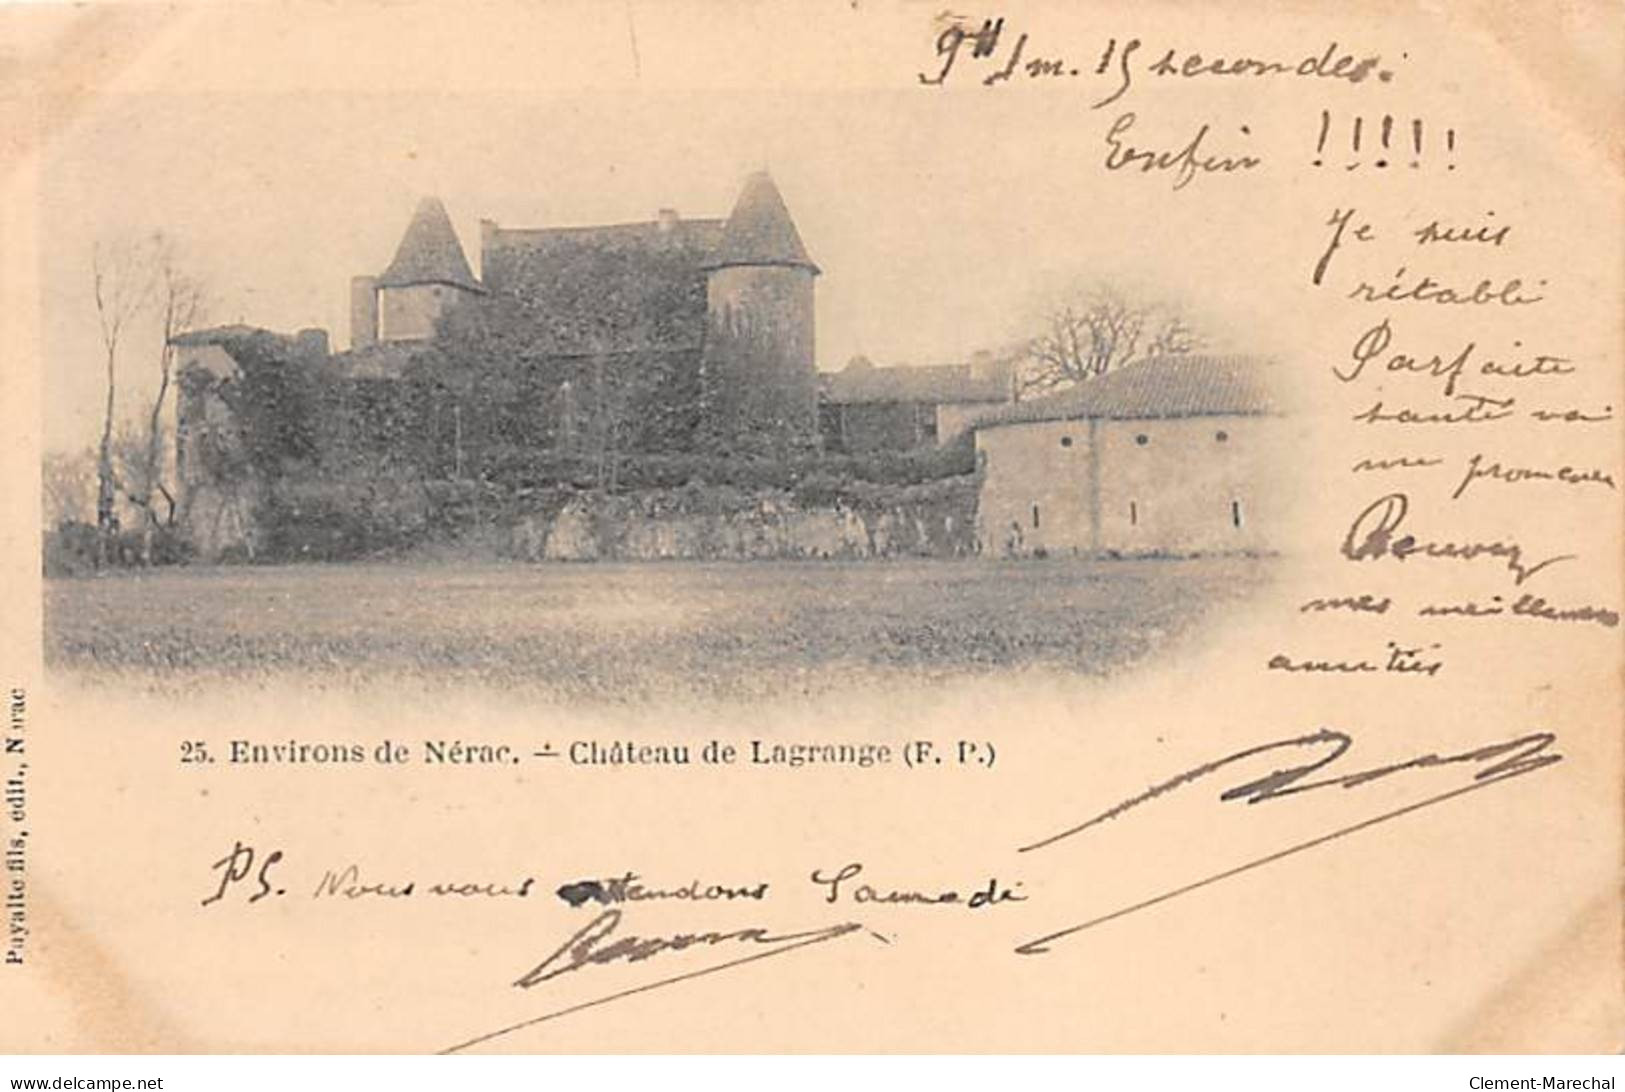 9H 1m. 15 secondes.
Enfin !!!!!
Je suis
rétabli
Parfaite
santé vai
me promener
Recevez
mes meilleures
amitiés
25. Environs de Nérac. — Château de Lagrange (F. P.)
Payalte fils, édit., Nérac
PS. Nous vous attendons Samedi
www.delcampe.net
Clement-Marechal